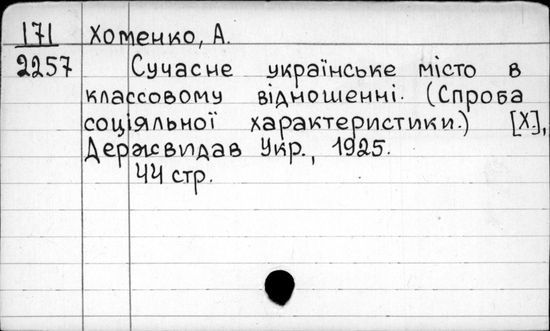 171 Хоменко, А.
2257 Сучасне українське місто в
классовому відношенні. (Спроба
соціяльної характеристики.) [Х],
Держвидав Укр., 1925.
44 стр.